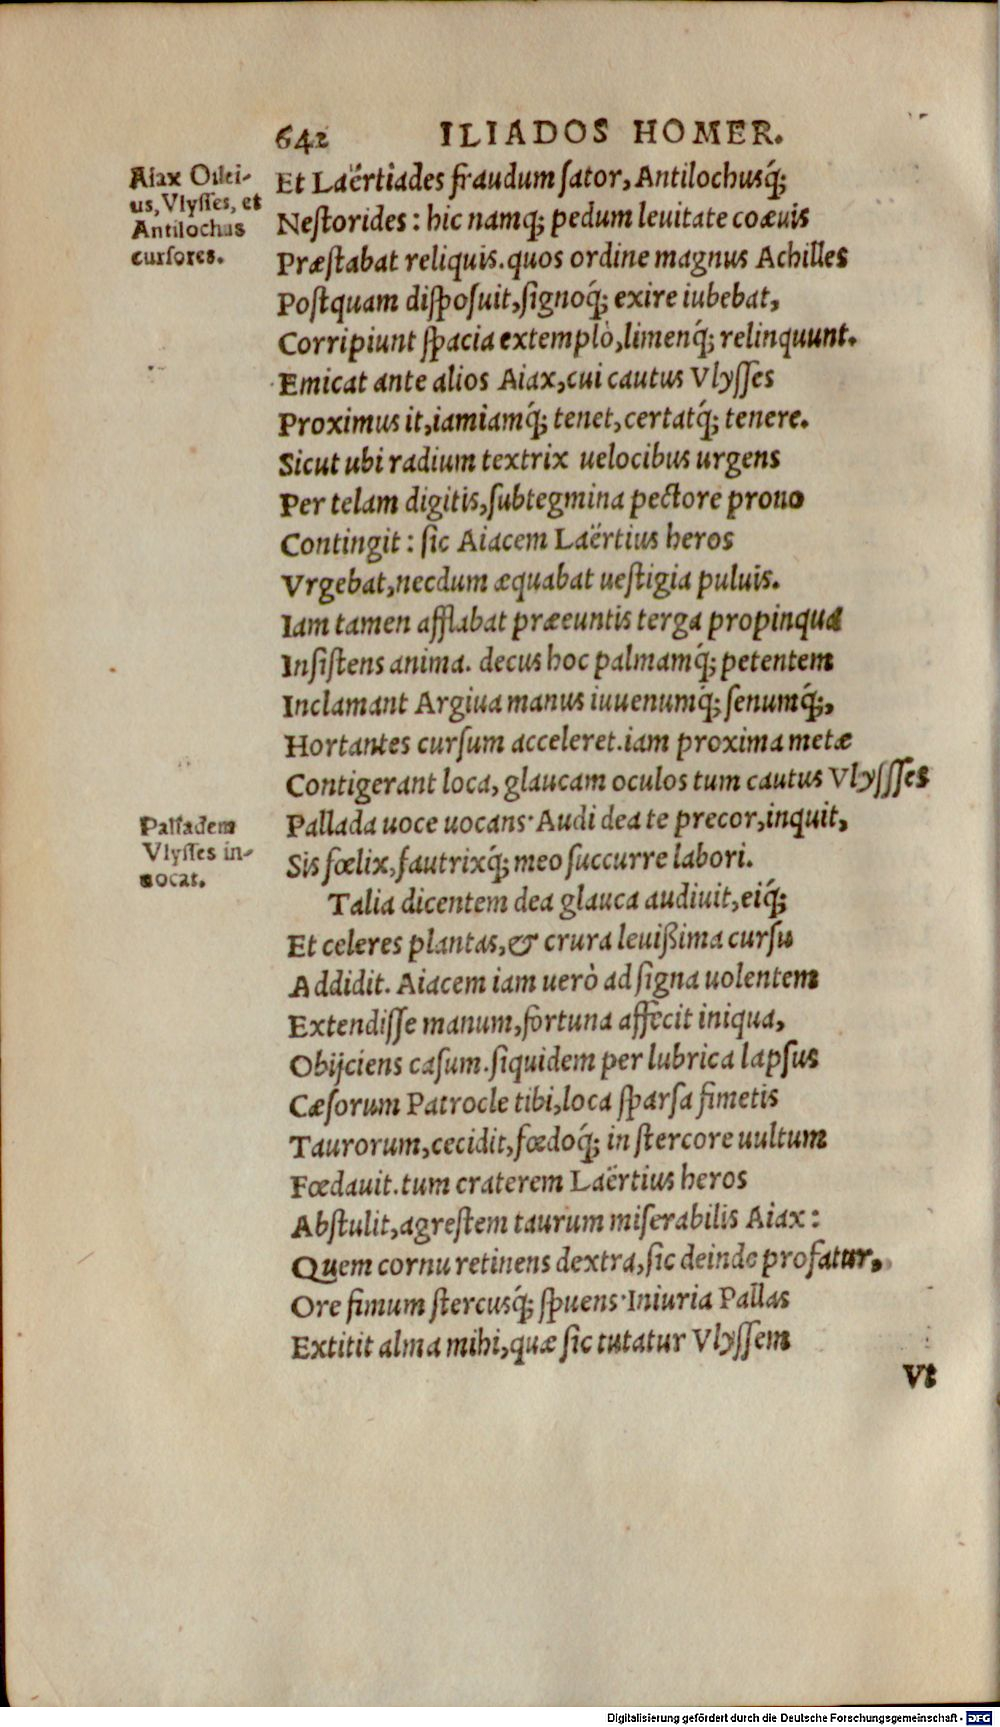 642 ILIADOS HOMER.
Aiax Oilei-
us, Vlysses, et
Antilochus
cursores.
Et Laërtiades fraudum sator, Antilochusq́;
Nestorides: hic namq; pedum leuitate coæuis
Præstabat reliquis. quos ordine magnus Achilles
Postquam disposuit, signoq́; exire iubebat,
Corripiunt spacia extemplò, limenq́; relinquunt.
Emicat ante alios Aiax, cui cautus Vlysses
Proximus it, iamiamq́; tenet, certatq́; tenere.
Sicut ubi radium textrix uelocibus urgens
Per telam digitis, subtegmina pectore prono
Contingit: sic Aiacem Laërtius heros
Vrgebat, necdum æquabat uestigia puluis.
Iam tamen afflabat præeuntis terga propinqua
Insistens anima. decus hoc palmamq́; petentem
Inclamant Argiua manus iuuenumq́; senumq́;,
Hortantes cursum acceleret. iam proxima metæ
Contigerant loca, glaucam oculos tum cautus Vlyssses
Palladem
Vlysses in-
uocat.
Pallada uoce uocans· Audi dea te precor, inquit,
Sis fœlix, fautrixq́; meo succurre labori.
Talia dicentem dea glauca audiuit, eiq́;
Et celeres plantas, & crura leuißima cursu
Addidit. Aiacem iam uerò ad signa uolentem
Extendisse manum, fortuna affecit iniqua,
Obijciens casum. siquidem per lubrica lapsus
Cæsorum Patrocle tibi, loca sparsa fimetis
Taurorum, cecidit, fœdoq́; in stercore uultum
Fœdauit. tum craterem Laërtius heros
Abstulit, agrestem taurum miserabilis Aiax:
Quem cornu retinens dextra, sic deinde profatur,
Ore fimum stercusq́; spuens· Iniuria Pallas
Extitit alma mihi, quæ sic tutatur Vlyssem
Vt
Digitalisierung gefördert durch die Deutsche Forschungsgemeinschaft - DFG